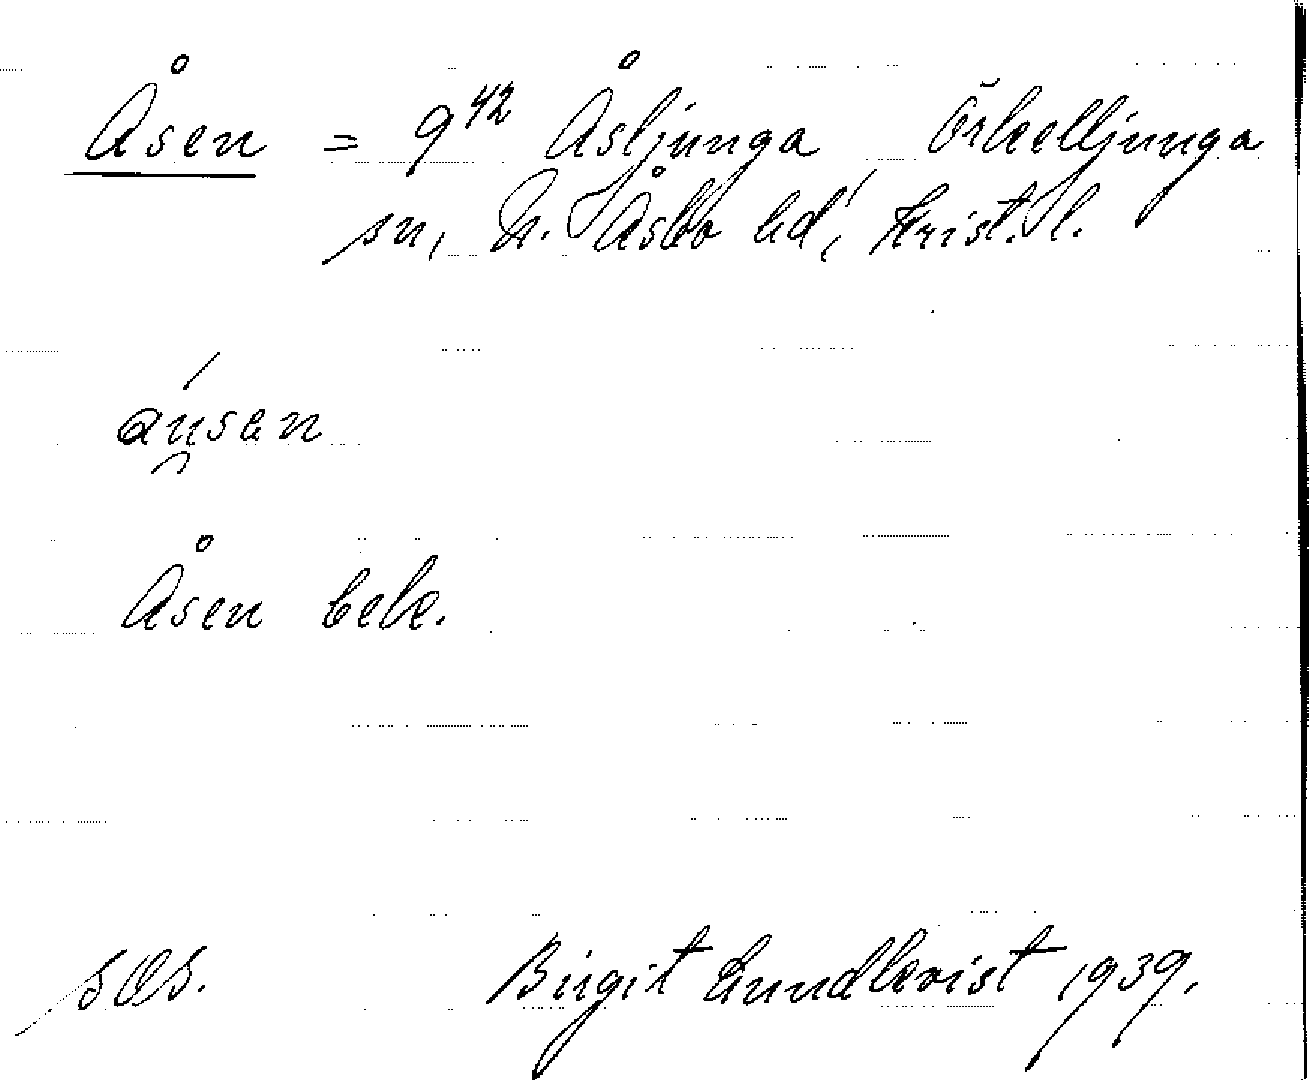 Åsen = 9⁴² Åsljunga Örkelljunga
sn, N. Åsbo hd, Krist. l.
Åsen beb.
SOS. Birgit Lundkvist 1939.